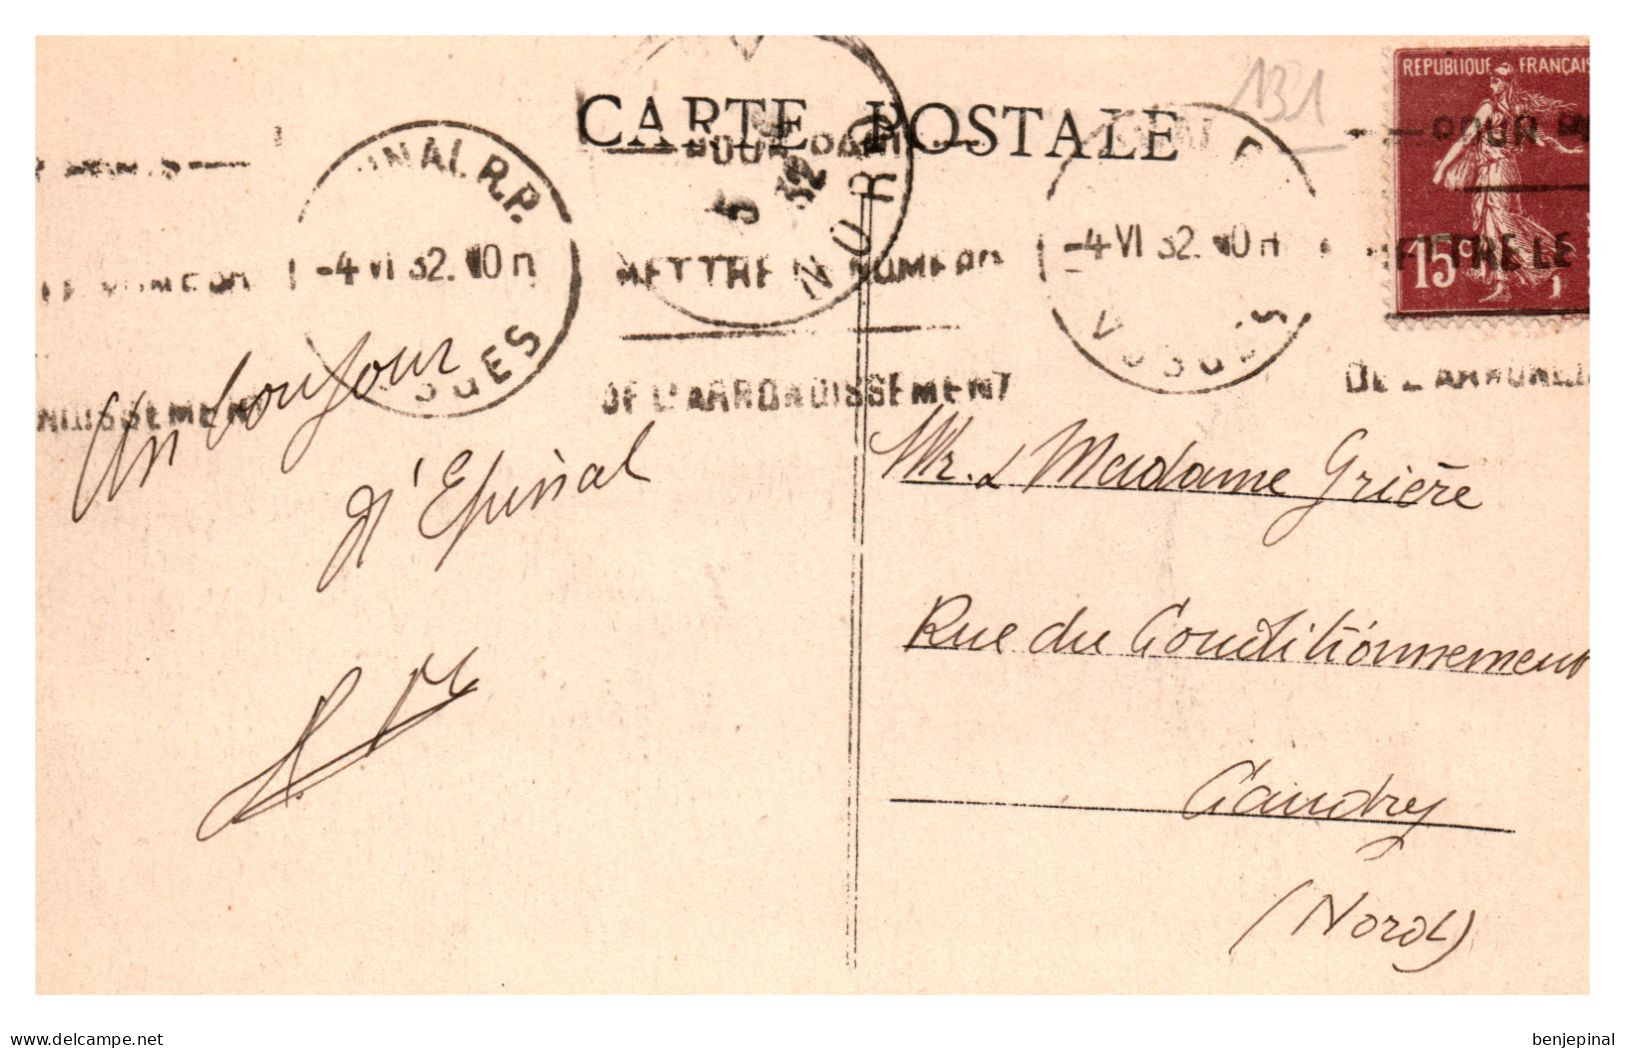 CARTE POSTALE
131
REPUBLIQUE FRANÇAIS
15c
POUR PARIS
METTRE LE NUMERO
DE L'ARRONDISSEMENT
INAL R.P.
-4 VI 32. 10 H
OGES
5
32
NORD
-4 VI 32. 10 H
VOSGES
POUR
METTRE LE
DE L'ARRONDI
LE NUMERO
NDISSEMENT
Un bonjour
d'Epinal
Mr. & Madame Grière
Rue du Conditionnement
Caudry
(Nord)
www.delcampe.net
benjepinal